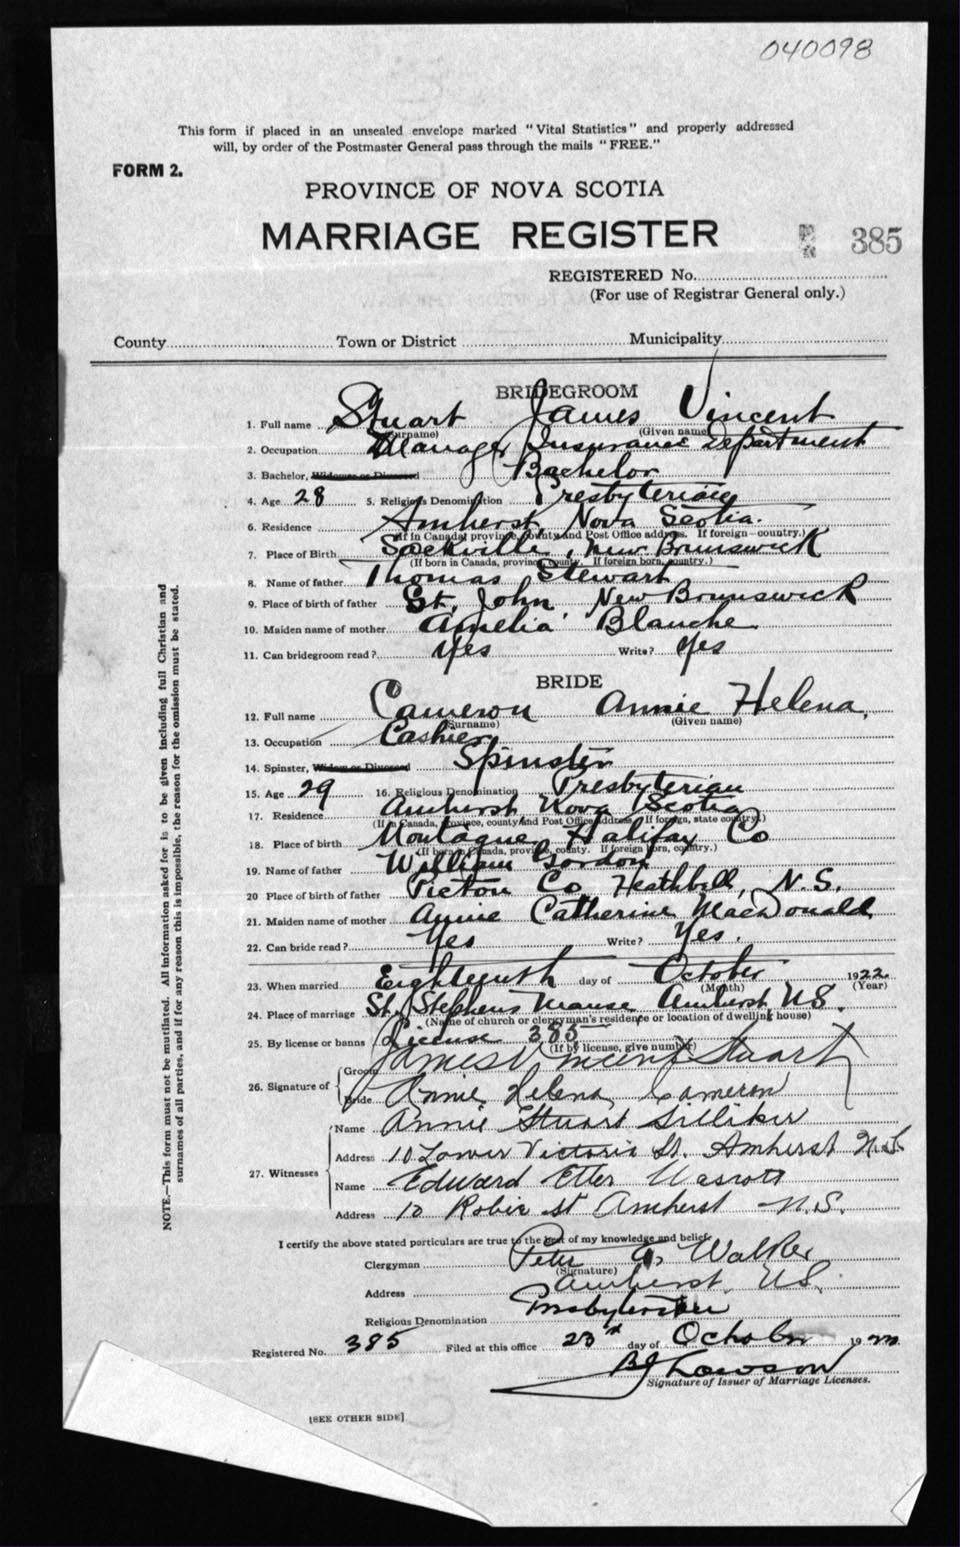 040098
This form if placed in an unsealed envelope marked "Vital Statistics" and properly addressed
will, by order of the Postmaster General pass through the mails "FREE."
FORM 2.
PROVINCE OF NOVA SCOTIA
MARRIAGE REGISTER 385
REGISTERED No.
(For use of Registrar General only.)
County Town or District Municipality
BRIDEGROOM
1. Full name Stuart James Vincent
(Surname) (Given name)
2. Occupation Manager Insurance Department
3. Bachelor, Widower or Divorced Bachelor
4. Age 28 5. Religious Denomination Presbyterian
6. Residence Amherst, Nova Scotia.
(If in Canada, province, county and Post Office address. If foreign—country.)
7. Place of Birth Sackville, New Brunswick
(If born in Canada, province, county. If foreign born, country.)
8. Name of father Thomas Stewart
9. Place of birth of father St. John New Brunswick
10. Maiden name of mother Amelia Blanche
11. Can bridegroom read? Yes Write? Yes
BRIDE
12. Full name Cameron Annie Helena,
(Surname) (Given name)
13. Occupation Cashier
14. Spinster, Widow or Divorced Spinster
15. Age 29 16. Religious Denomination Presbyterian
17. Residence Amherst Nova Scotia
(If in Canada, province, county and Post Office address. If foreign, state country.)
18. Place of birth Montague Halifax Co
(If born in Canada, province, county. If foreign born, country.)
19. Name of father William Gordon
20 Place of birth of father Pictou Co Heathbell, N.S.
21. Maiden name of mother Annie Catherine MacDonald
22. Can bride read? Yes Write? Yes.
23. When married Eighteenth day of October 1922
(Month) (Year)
24. Place of marriage St. Stephens Manse Amherst, N.S.
(Name of church or clergyman's residence or location of dwelling house)
25. By license or banns License 385
(If by license, give number)
26. Signature of Groom James Vincent Stuart
Bride Annie Helena Cameron
27. Witnesses Name Annie Stuart Silliker
Address 10 Lower Victoria St. Amherst N.S.
Name Edward Etter
Address 10 Robie St Amherst N.S.
I certify the above stated particulars are true to the best of my knowledge and belief.
Clergyman Peter Walker
(Signature)
Address Amherst, N.S.
Religious Denomination Presbyterian
Registered No. 385 Filed at this office 23rd day of October 1922
Signature of Issuer of Marriage Licenses.
[SEE OTHER SIDE]
NOTE.—This form must not be mutilated. All information asked for is to be given including full Christian and
surnames of all parties, and if for any reason this is impossible, the reason for the omission must be stated.